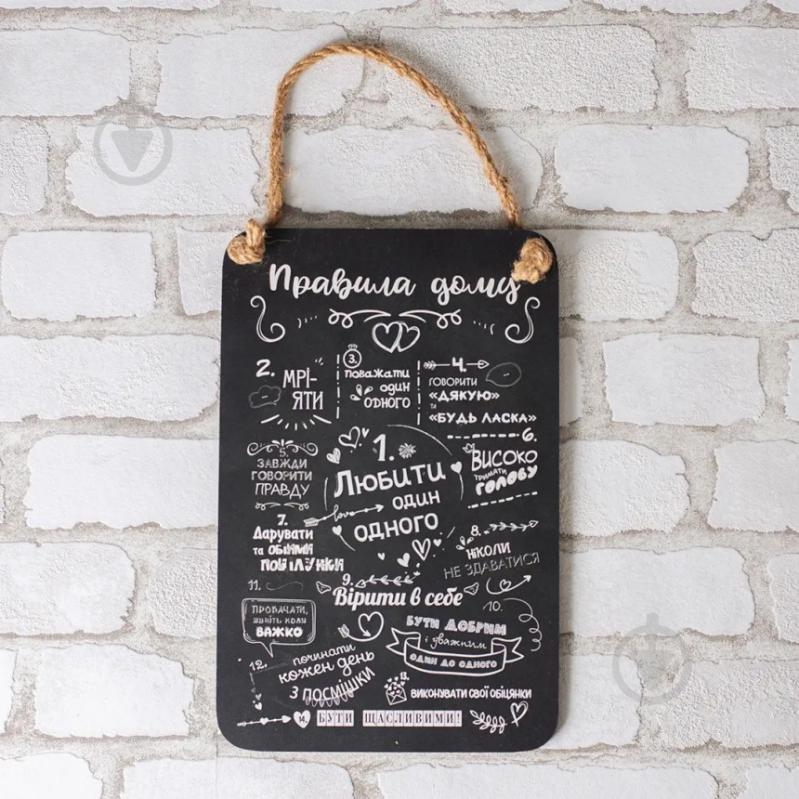 Правила дому
2.
МРІ-
ЯТИ
3.
поважати
один
одного
4.
ГОВОРИТИ
«ДЯКУЮ»
та
«БУДЬ ЛАСКА»
1.
Любити
один
одного
love
5.
ЗАВЖДИ
ГОВОРИТИ
ПРАВДУ
6.
ВИСОКО
тримати
ГОЛОВУ
7.
Дарувати
та ОБІЙМИ
ПОЦІЛУНКИ
8.
НІКОЛИ
НЕ ЗДАВАТИСЯ
9.
Вірити в себе
10.
БУТИ ДОБРИМ
і уважним
ОДИН ДО ОДНОГО
11.
ПРОБАЧАТИ,
НАВІТЬ КОЛИ
ВАЖКО
12.
починати
кожен день
З ПОСМІШКИ
13.
ВИКОНУВАТИ СВОЇ ОБІЦЯНКИ
14. БУТИ ЩАСЛИВИМИ!